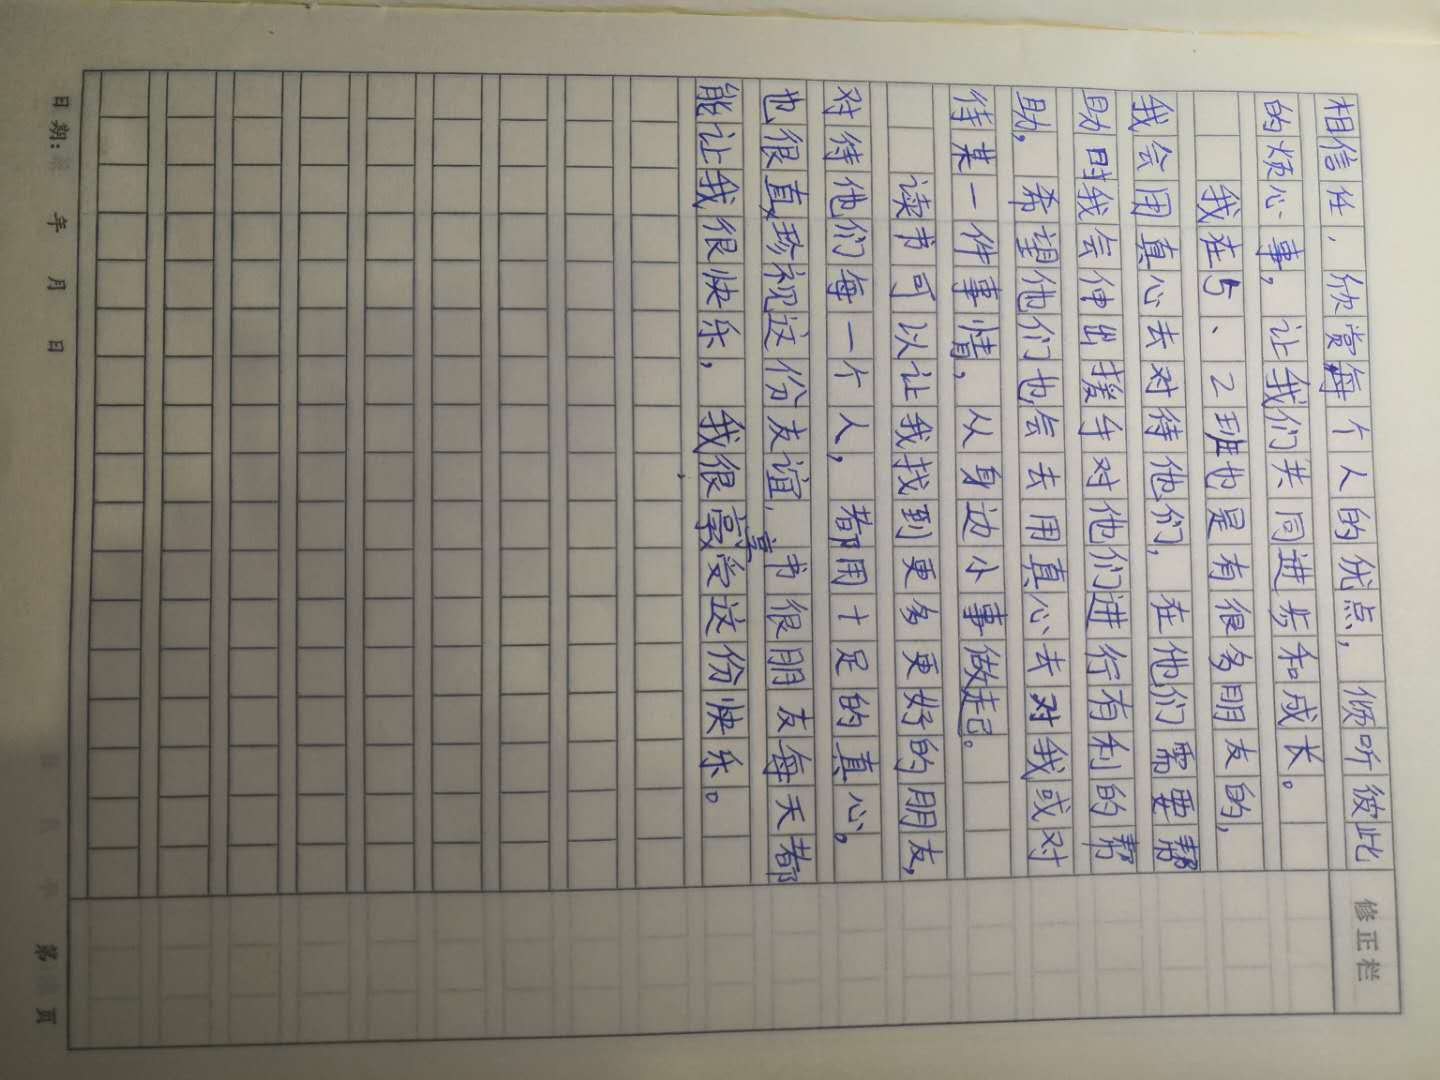 相信任，欣赏每个人的优点，倾听彼此
的烦心事，让我们共同进步和成长。
我在5、2班也是有很多朋友的，
我会用真心去对待他们，在他们需要帮
助时我会伸出援手对他们进行有利的帮
助，希望他们也会去用真心去对我或对
待某一件事情，从身边小事做起。
读书可以让我找到更多更好的朋友，
对待他们每一个人，都用十足的真心。
也很真珍视这份友谊，书很朋友每天都
能让我很快乐，我很享受这份快乐。
修正栏
日期： 年 月 日
第 页